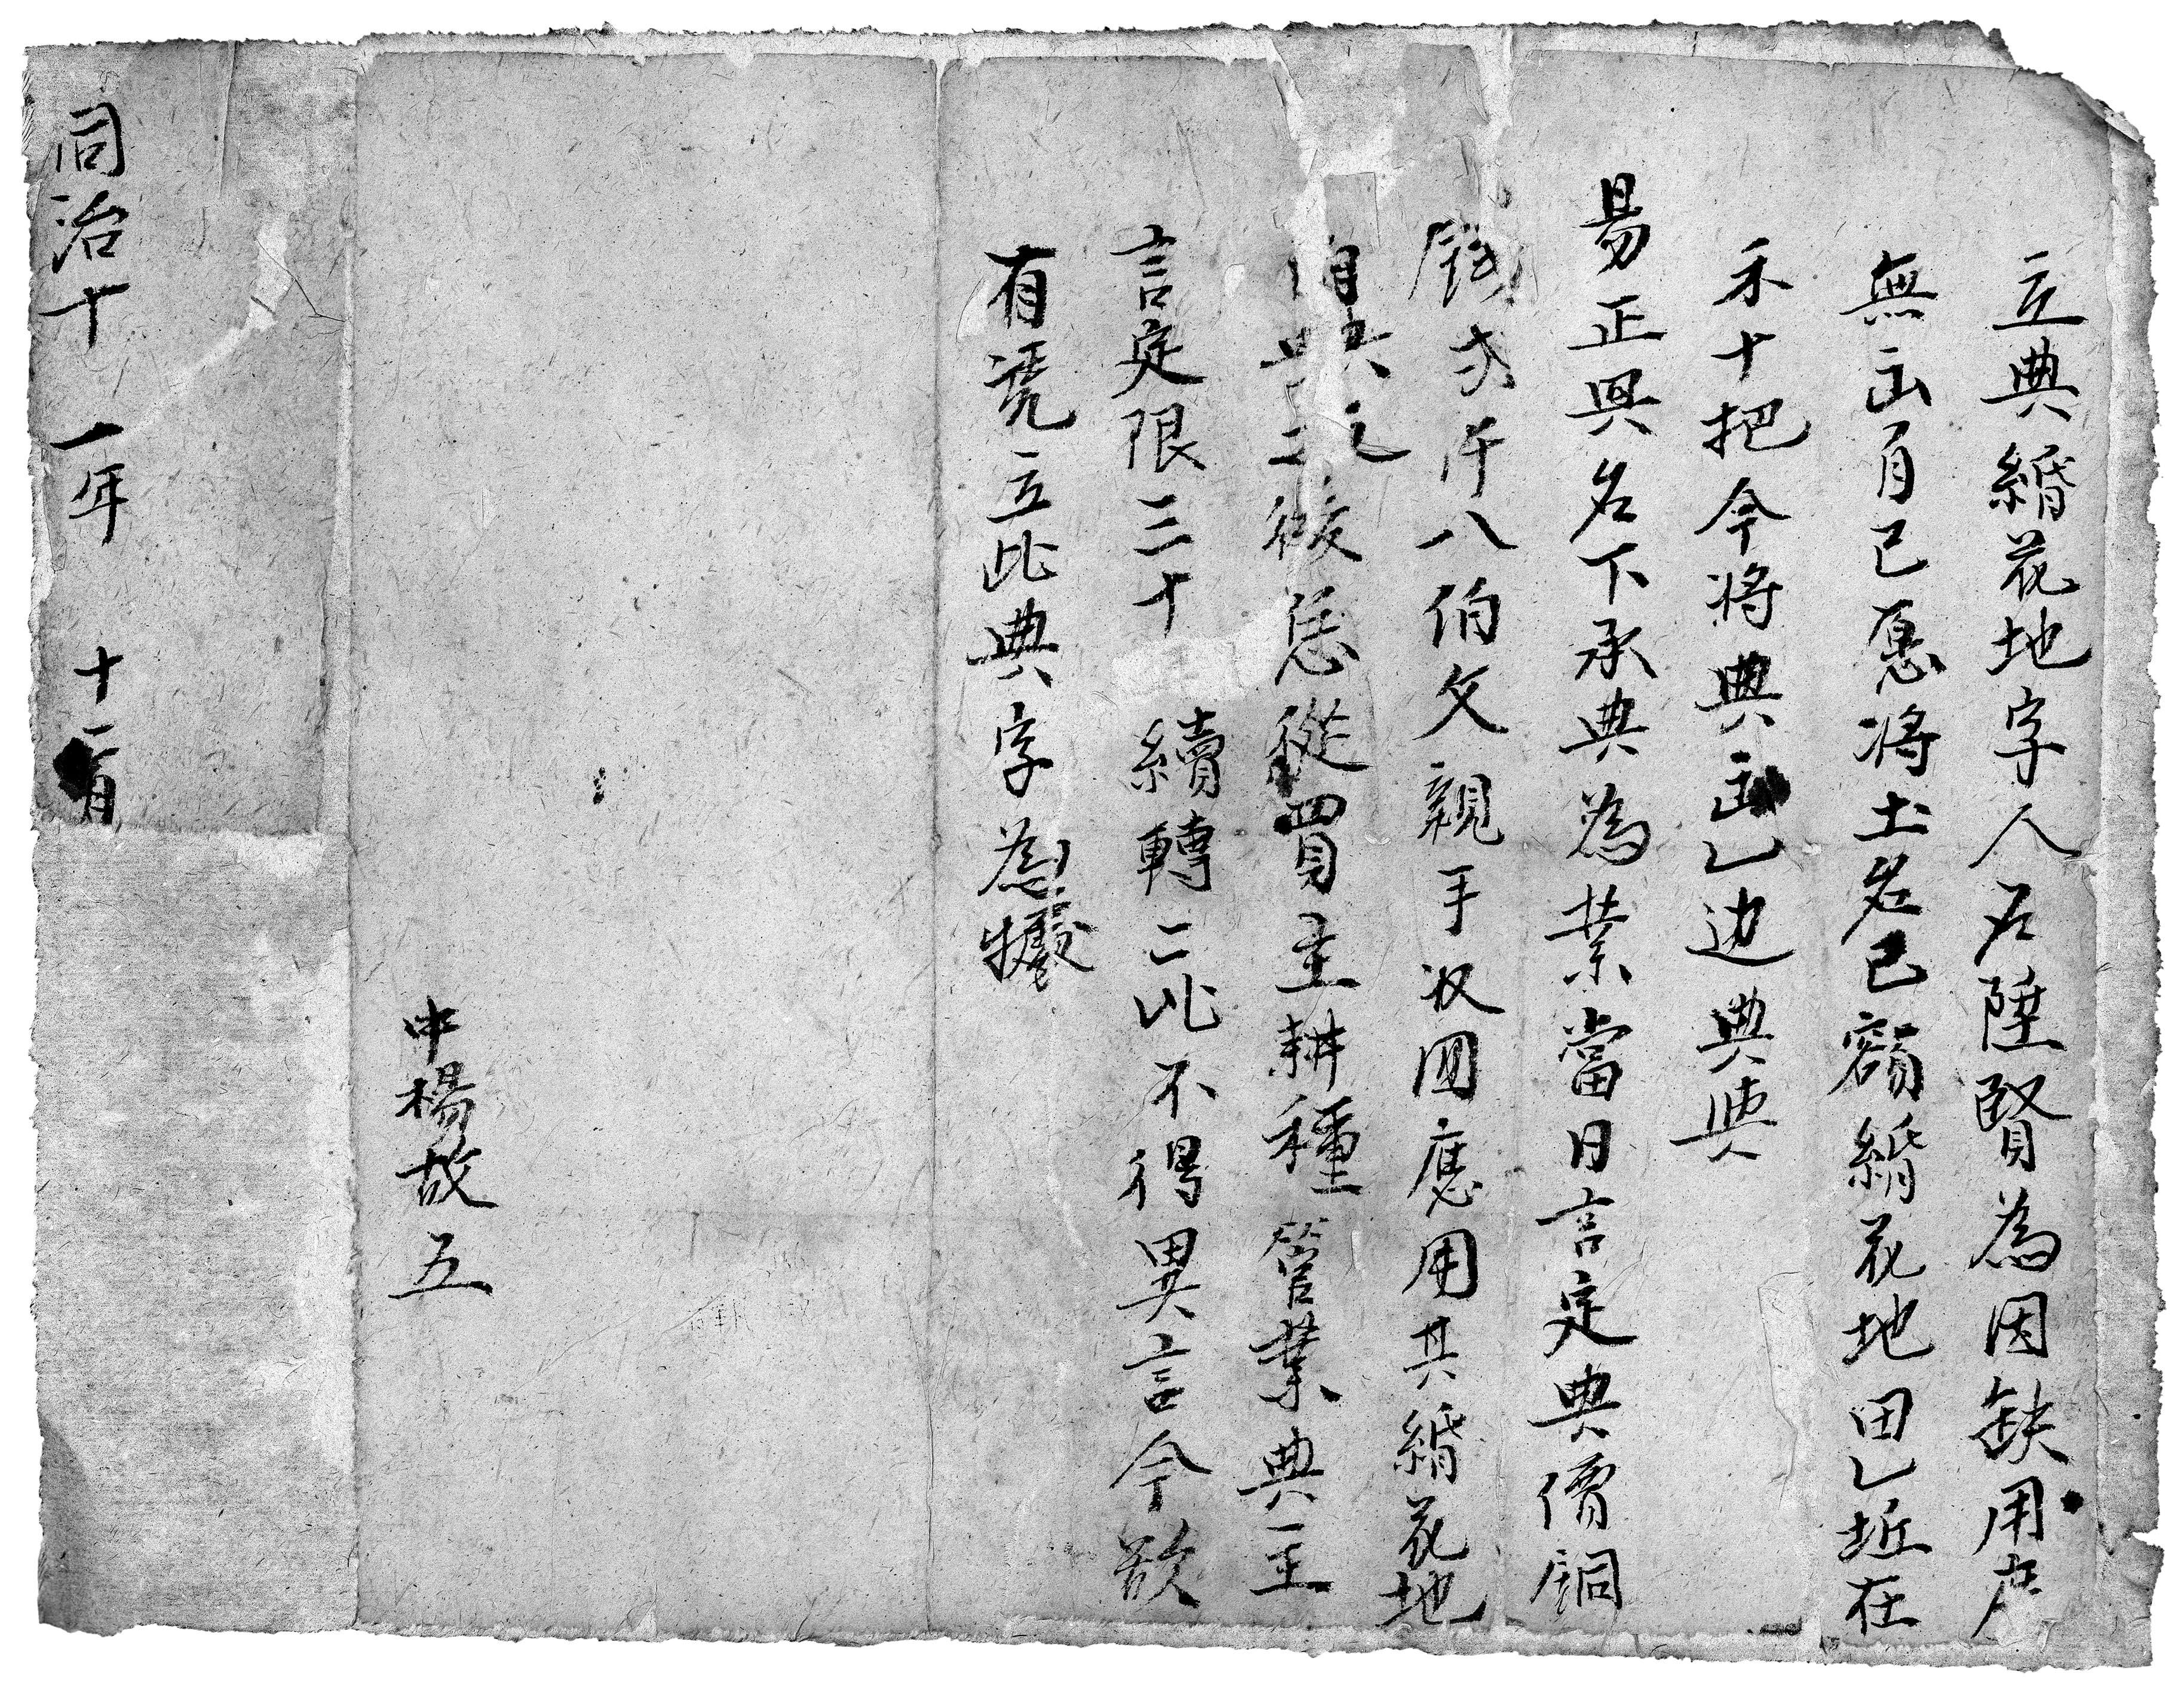 立典綿花地字人石陞賢為因缺用度
無出自己愿將土名己 綿花地田乚坵在
禾十把今將典出乚边典與
昜正興名下承典為業當日言定典價銅
錢弍仟八伯文親手收囬應用其綿花地
自典之後恁從買主耕種管業典主
言定限三十 續轉二比不得異言今欲
有凴立此典字為據
中楊故五
同治十一年 十二月